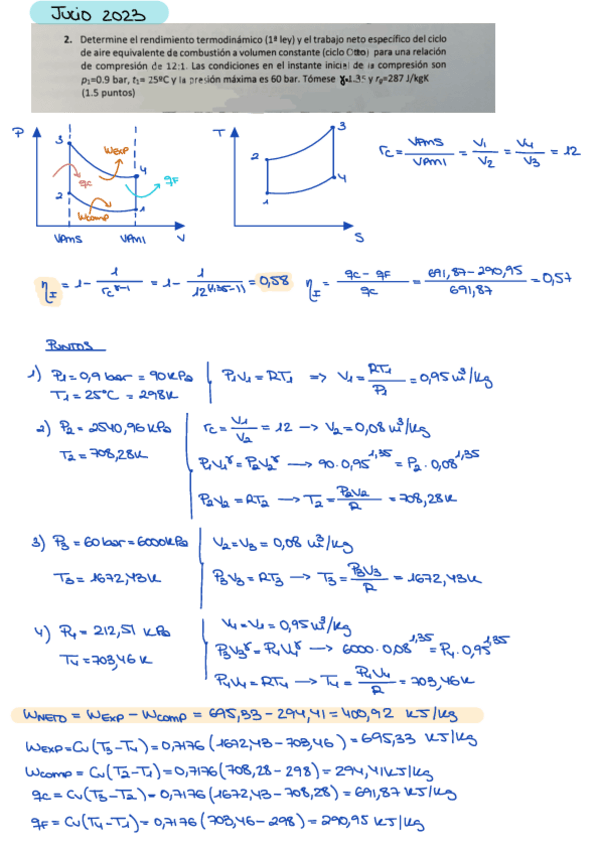 Julio 2023
2. Determine el rendimiento termodinámico (1ª ley) y el trabajo neto específico del ciclo
de aire equivalente de combustión a volumen constante (ciclo Otto) para una relación
de compresión de 12:1. Las condiciones en el instante inicial de la compresión son
p₁=0.9 bar, t₁= 25ºC y la presión máxima es 60 bar. Tómese γ=1.35 y rg=287 J/kgK
(1.5 puntos)
P 3 WEXP 4 qC qF 2 Wcomp 1 VPMS VPMI V
T 3 2 4 1 S
rc = VPMS/VPMI = V1/V2 = V4/V3 = 12
ηI = 1 - 1/rc^γ-1 = 1 - 1/12^(1,35-1) = 0,58 ηI = (qC - qF)/qC = (691,87-290,95)/691,87 = 0,57
PUNTOS
1) P1 = 0,9 bar = 90 kPa P1V1 = RT1 => V1 = RT1/P1 = 0,95 m³/kg
T1 = 25°C = 298K
2) P2 = 2540,96 kPa rc = V1/V2 = 12 -> V2 = 0,08 m³/kg
T2 = 708,28K P1V1^γ = P2V2^γ -> 90·0,95^1,35 = P2·0,08^1,35
P2V2 = RT2 -> T2 = P2V2/R = 708,28K
3) P3 = 60 bar = 6000 kPa V2 = V3 = 0,08 m³/kg
T3 = 1672,43K P3V3 = RT3 -> T3 = P3V3/R = 1672,43K
4) P4 = 212,51 kPa V4 = V1 = 0,95 m³/kg
T4 = 703,46 K P3V3^γ = P4V4^γ -> 6000·0,08^1,35 = P4·0,95^1,35
P4V4 = RT4 -> T4 = P4V4/R = 703,46K
WNETO = WEXP - Wcomp = 695,33 - 294,41 = 400,92 KJ/kg
WEXP = Cv(T3-T4) = 0,7176(1672,43 - 703,46) = 695,33 KJ/kg
Wcomp = Cv(T2-T1) = 0,7176(708,28 - 298) = 294,41 KJ/kg
qC = Cv(T3-T2) = 0,7176(1672,43 - 708,28) = 691,87 KJ/kg
qF = Cv(T4-T1) = 0,7176(703,46 - 298) = 290,95 KJ/kg